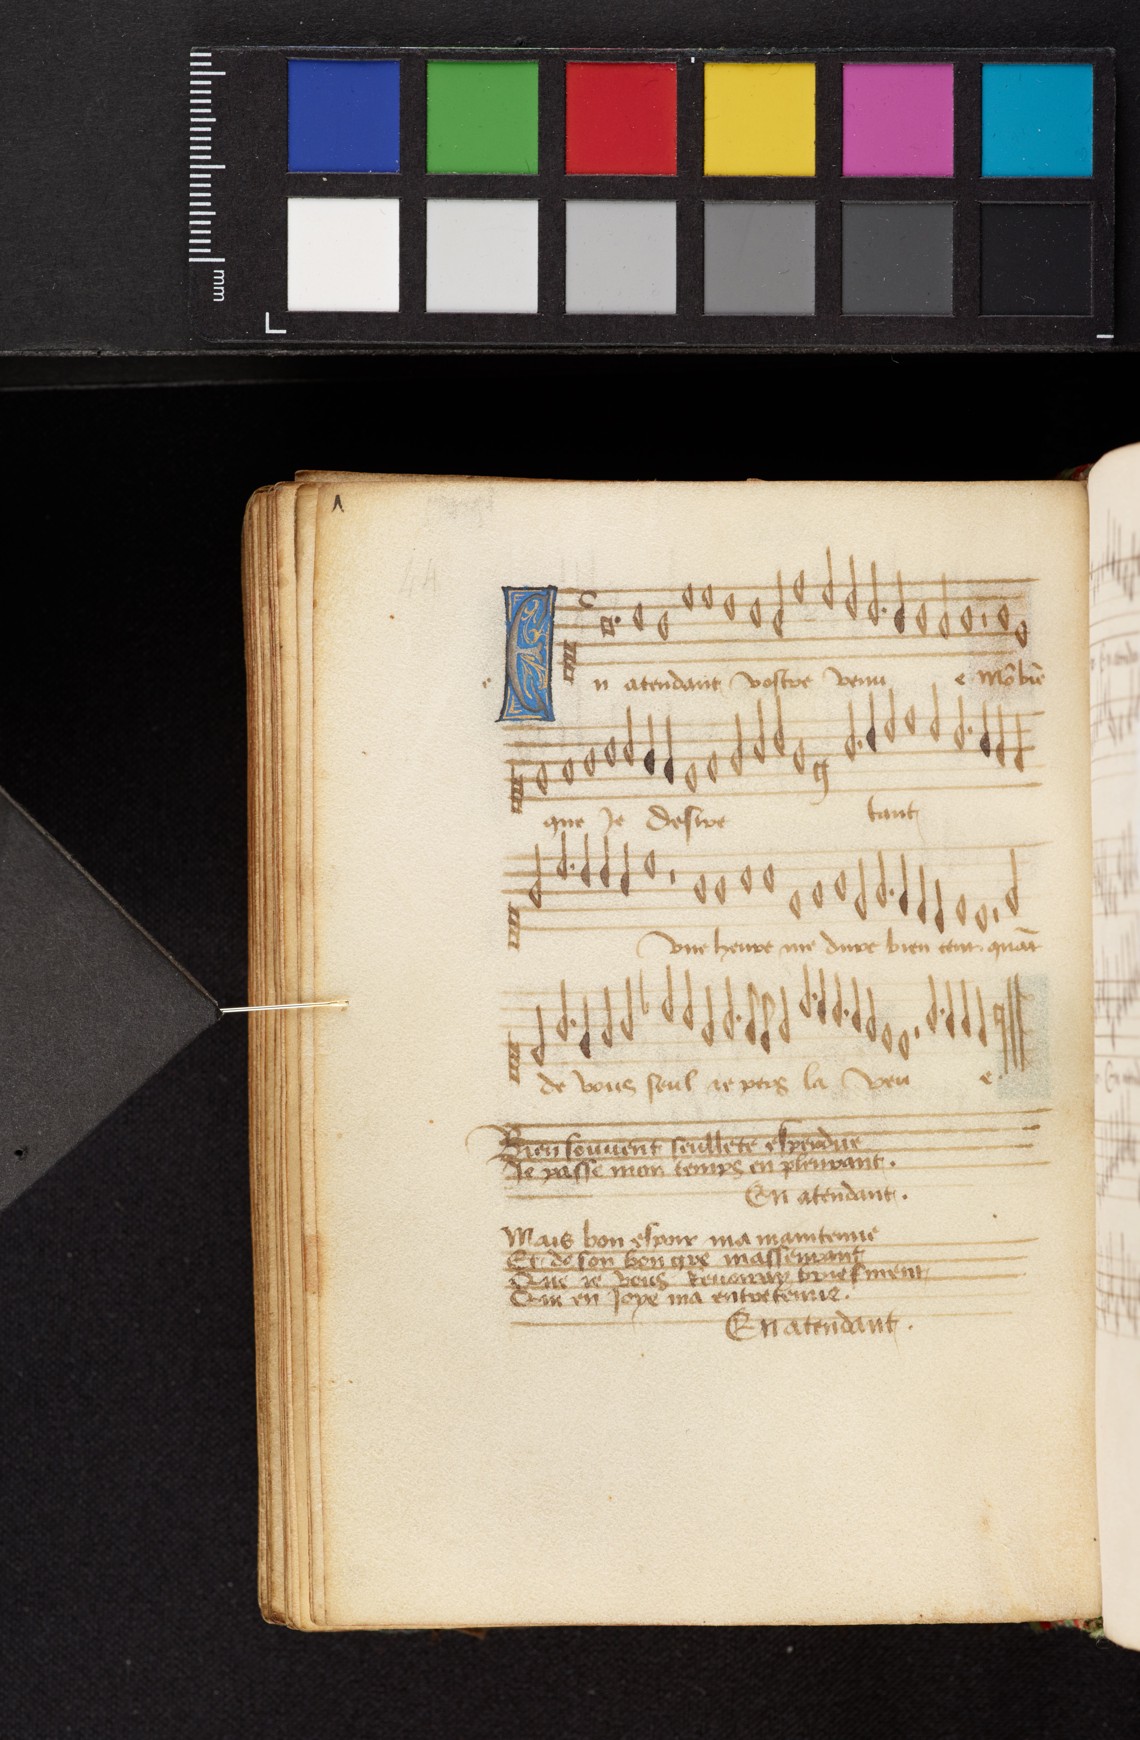 mm
En atendant vostre venu e Mō biē
que Je desire tant
vne heure me dure bien cent quāt
de vous seul ie pers la veu e
Bien souuent seullete esperdue
Je passe mon temps en pleurant .
En atendant .
Mais bon espoir ma maintenue
Et de son bon gre masseurant
Que ie vous reuoiray briefment
Qui en Joye ma entretenue .
En atendant .